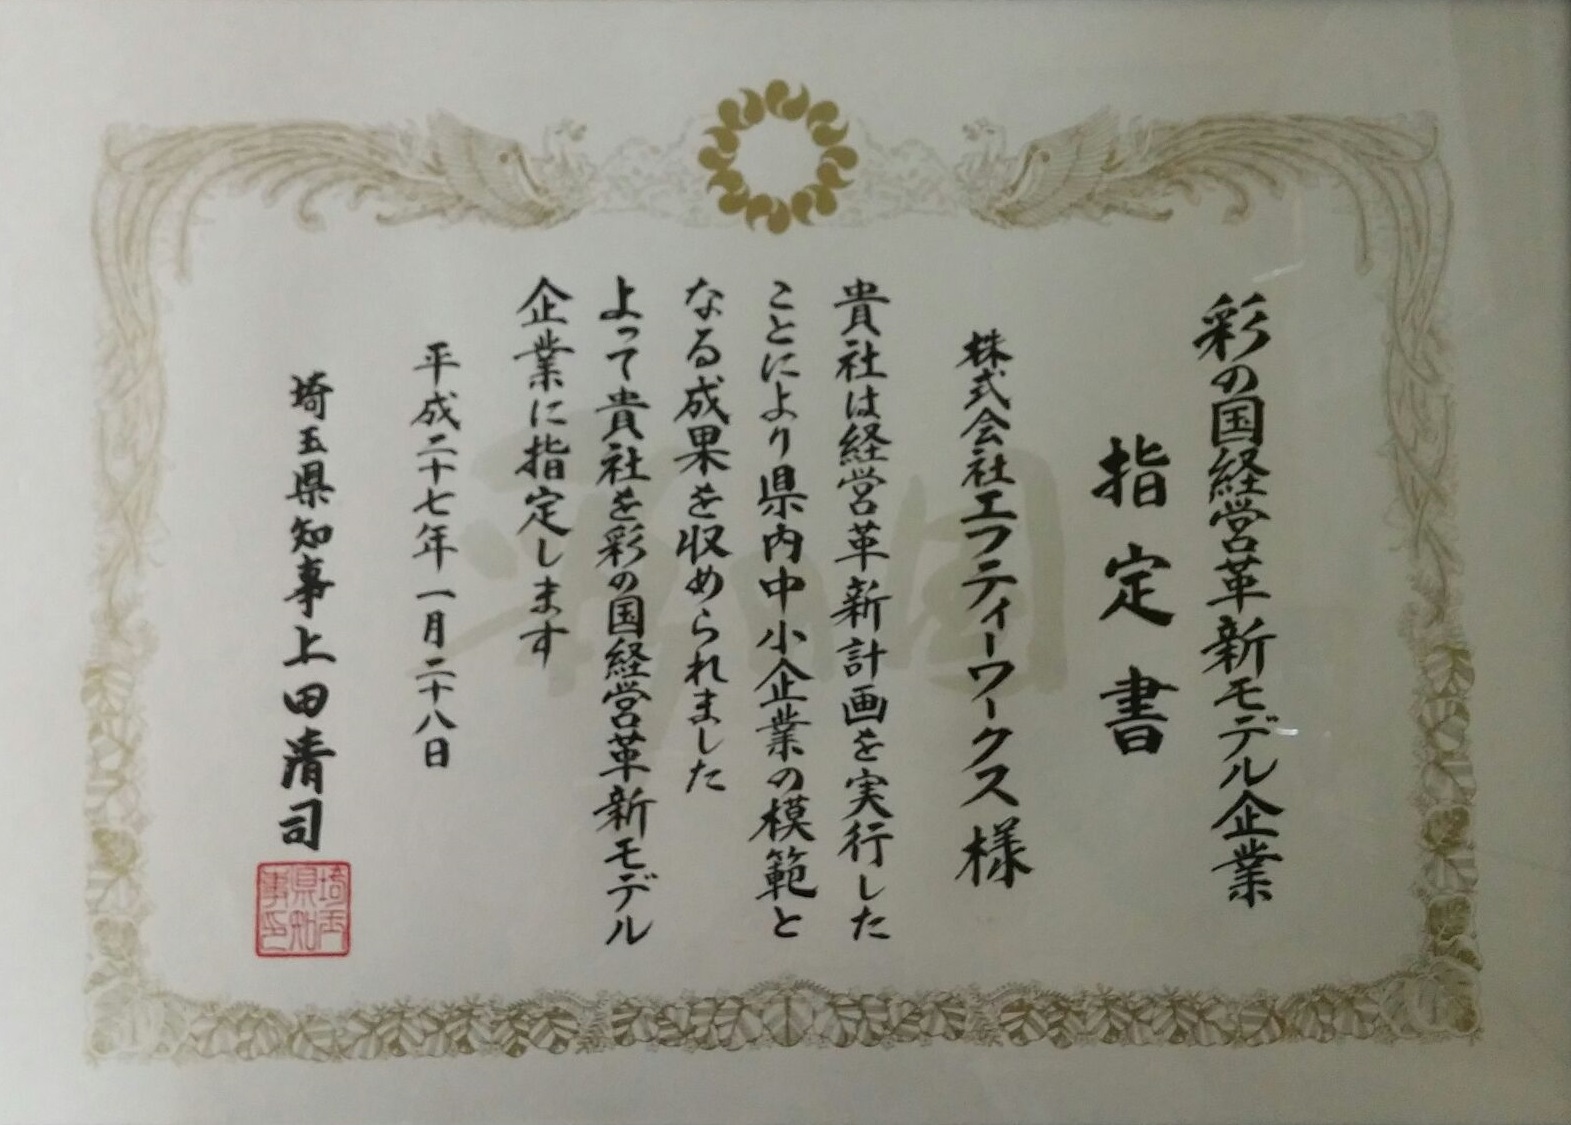 彩の国経営革新モデル企業
指定書
株式会社エフティーワークス様
貴社は経営革新計画を実行した
ことにより県内中小企業の模範と
なる成果を収められました
よって貴社を彩の国経営革新モデル
企業に指定します
平成二十七年一月二十八日
埼玉県知事上田清司
埼玉
県知
事印